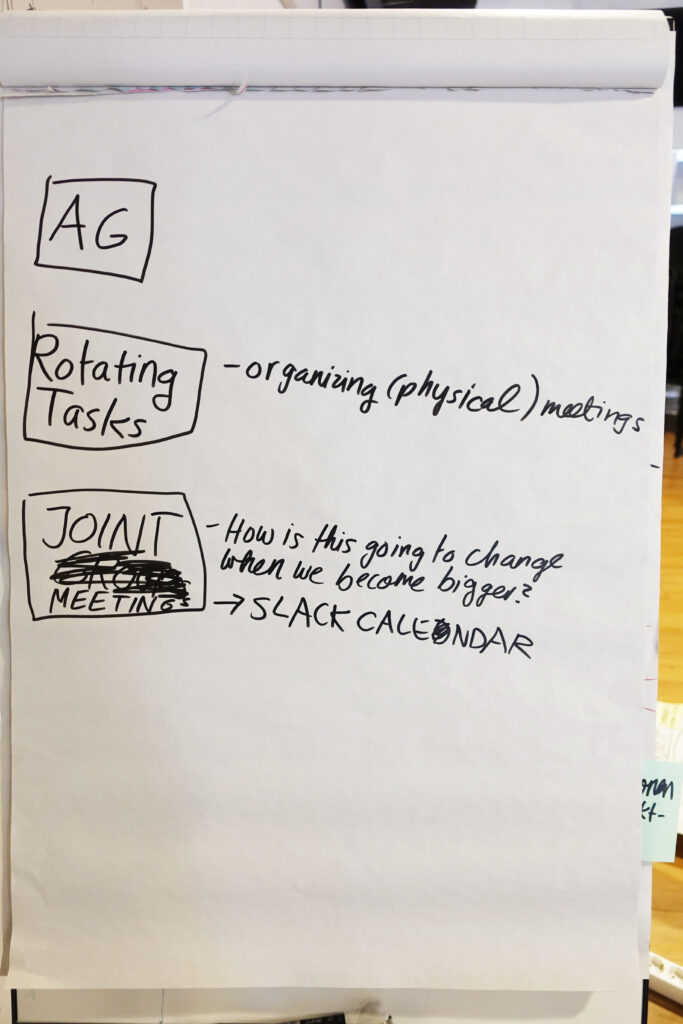 AG
Rotating
Tasks
- organizing (physical) meetings
JOINT
MEETINGS
- How is this going to change
when we become bigger?
→ SLACK CALENDAR